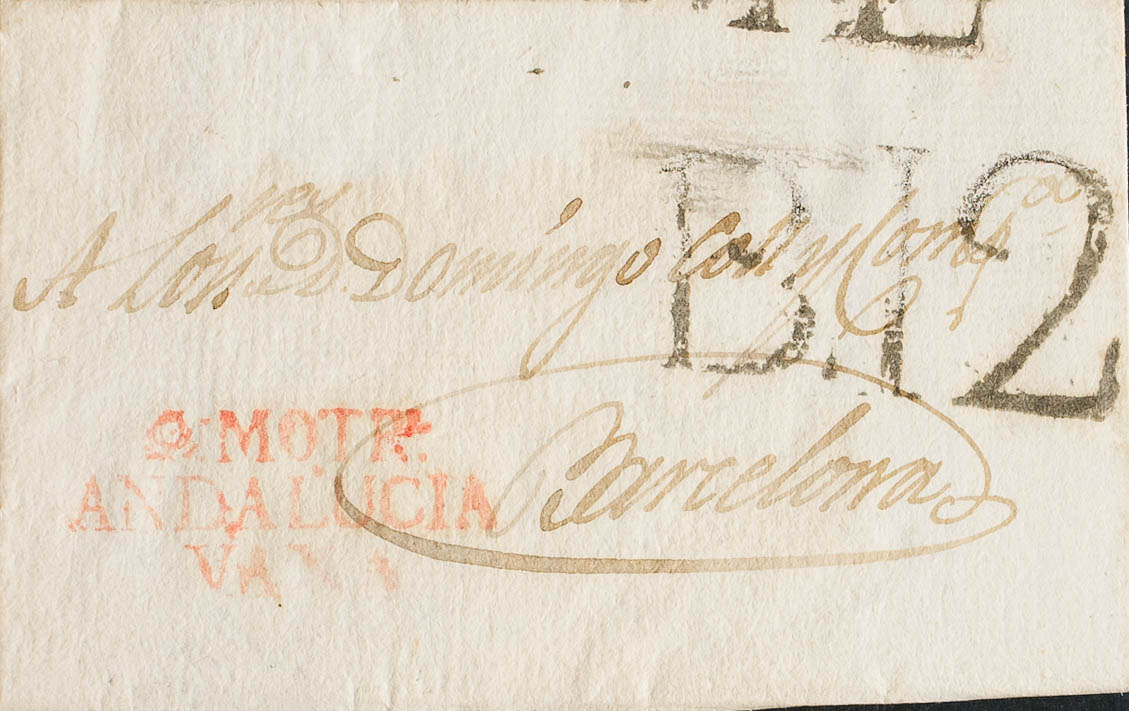 B12
A Los S.res D.n Domingo Coll y Comp.a
Barcelona
MOTR.
ANDALUCIA